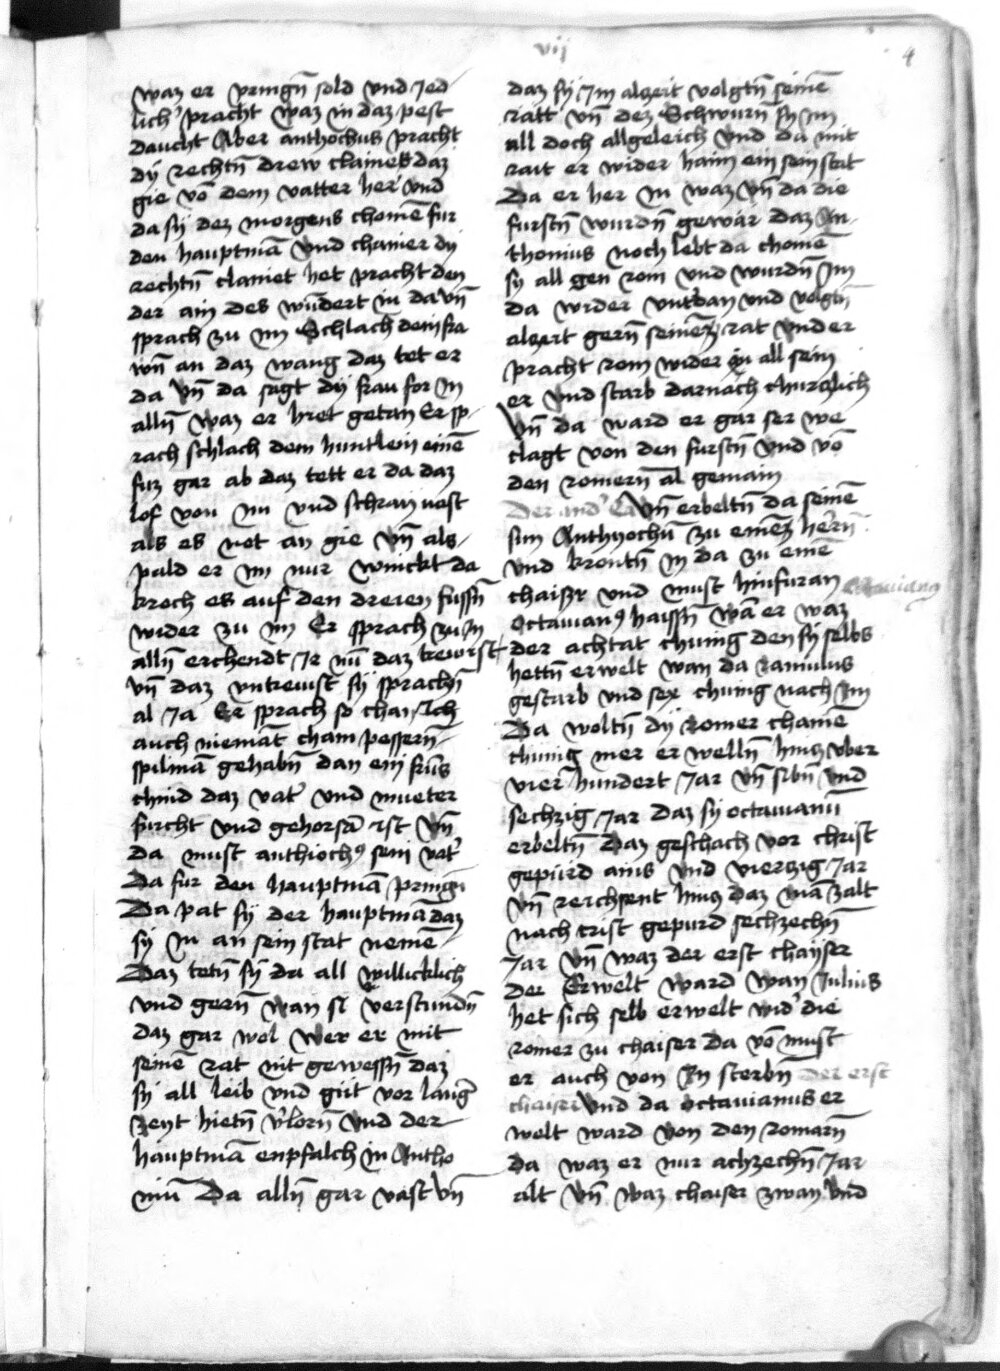 vij
4
waz er pringñ sold vnd Jed
lich pracht waz in daz pest
daucht Aber anthochus pracht
dy rechtñ drew clained daz
gie võ dem vatter her vnd
da sy dez morgens chomē fur
den hauptmā vnd chainer dy
rechtñ clainet het pracht den
der ain des wundert in da vñ
sprach zu im Schlach dein fra
wñ an daz wang daz tet er
da vñ da sagt dy frau for in
allñ waz er hiet getan Er sp
rach schlach dem huntlein einē
fuz gar ab daz tett er da daz
lof von im vnd schray vast
als es net an gie vñ als
pald er im nur winckt da
kroch es auf den dreien fussñ
wider zu im Er sprach zu in
allñ erchendt Jr nū daz trewist
vñ daz vntrewist sy sprachñ
al Ja Er sprach so chan Ich
auch niemāt cham pessern
spilmā gehabñ dan ein kuns
chind daz vat' vnd mueter
furcht vnd gehorsā ist vñ
da must anthioch9 sein vat'
Da fur den hauptmā pringñ
Da pat sy der hauptmā daz
sy in an sein stat nemē
Daz tetñ sy da all willicklich
vnd gerñ wan si verstundñ
daz gar wol wer er mit
seinē rat nit gewessñ daz
sy all leib vnd gut vor lang'
zeyt hietñ v'lorñ vnd der
hauptmā enpfalch in Antho
niū Da allñ gar vast vñ
daz sy Jm alzeit volgtñ seinē
ratt vñ dez Schwurñ sy im
all doch allgeleich vnd da mit
rait er wider haim ein sein stat
Da er her in waz vñ da die
furstñ wurdñ gewar daz An
thonius noch lebt da chomē
sy all gen rom vnd wurdñ Im
da wider vnt'dan vnd volgtñ
alzeit gerñ seinez rat vnd er
pracht rom wider in all sein
er vnd starb darnach churczlich
vñ da ward er gar ser we
clagt von den furstñ vnd võ
den romerñ al gemain
vñ erbeltñ da seinē
sun Anthyochū zu einez herñ
vnd krontñ in da zu einē
chaisser vnd must hinfuran
Octauian9 haissñ wā er waz
der achtat chunig den sy selbs
hettñ erwelt wan da Ramulus
gestarb vnd sex chunig nach Im
Da woltñ dy Romer chainē
chunig mer er wellñ hincz vber
vier hundert Jar vñ sibñ vnd
sechzig Jar daz sy octauianū
erbeltñ Daz geschach vor christ
gepurd ains vnd vierzig Jar
vñ reichsent hincz daz mā zalt
nach crist gepurd sechzechñ
Jar vñ waz der erst chayser
der Erwelt ward wan Julius
het sich selb erwelt wid' die
romer zu chaiser da võ must
er auch von In sterbñ der erst
chaiser vnd da octauianus er
welt ward von den romarñ
da waz er nur achzechñ Jar
alt vñ waz chaiser zway vnd